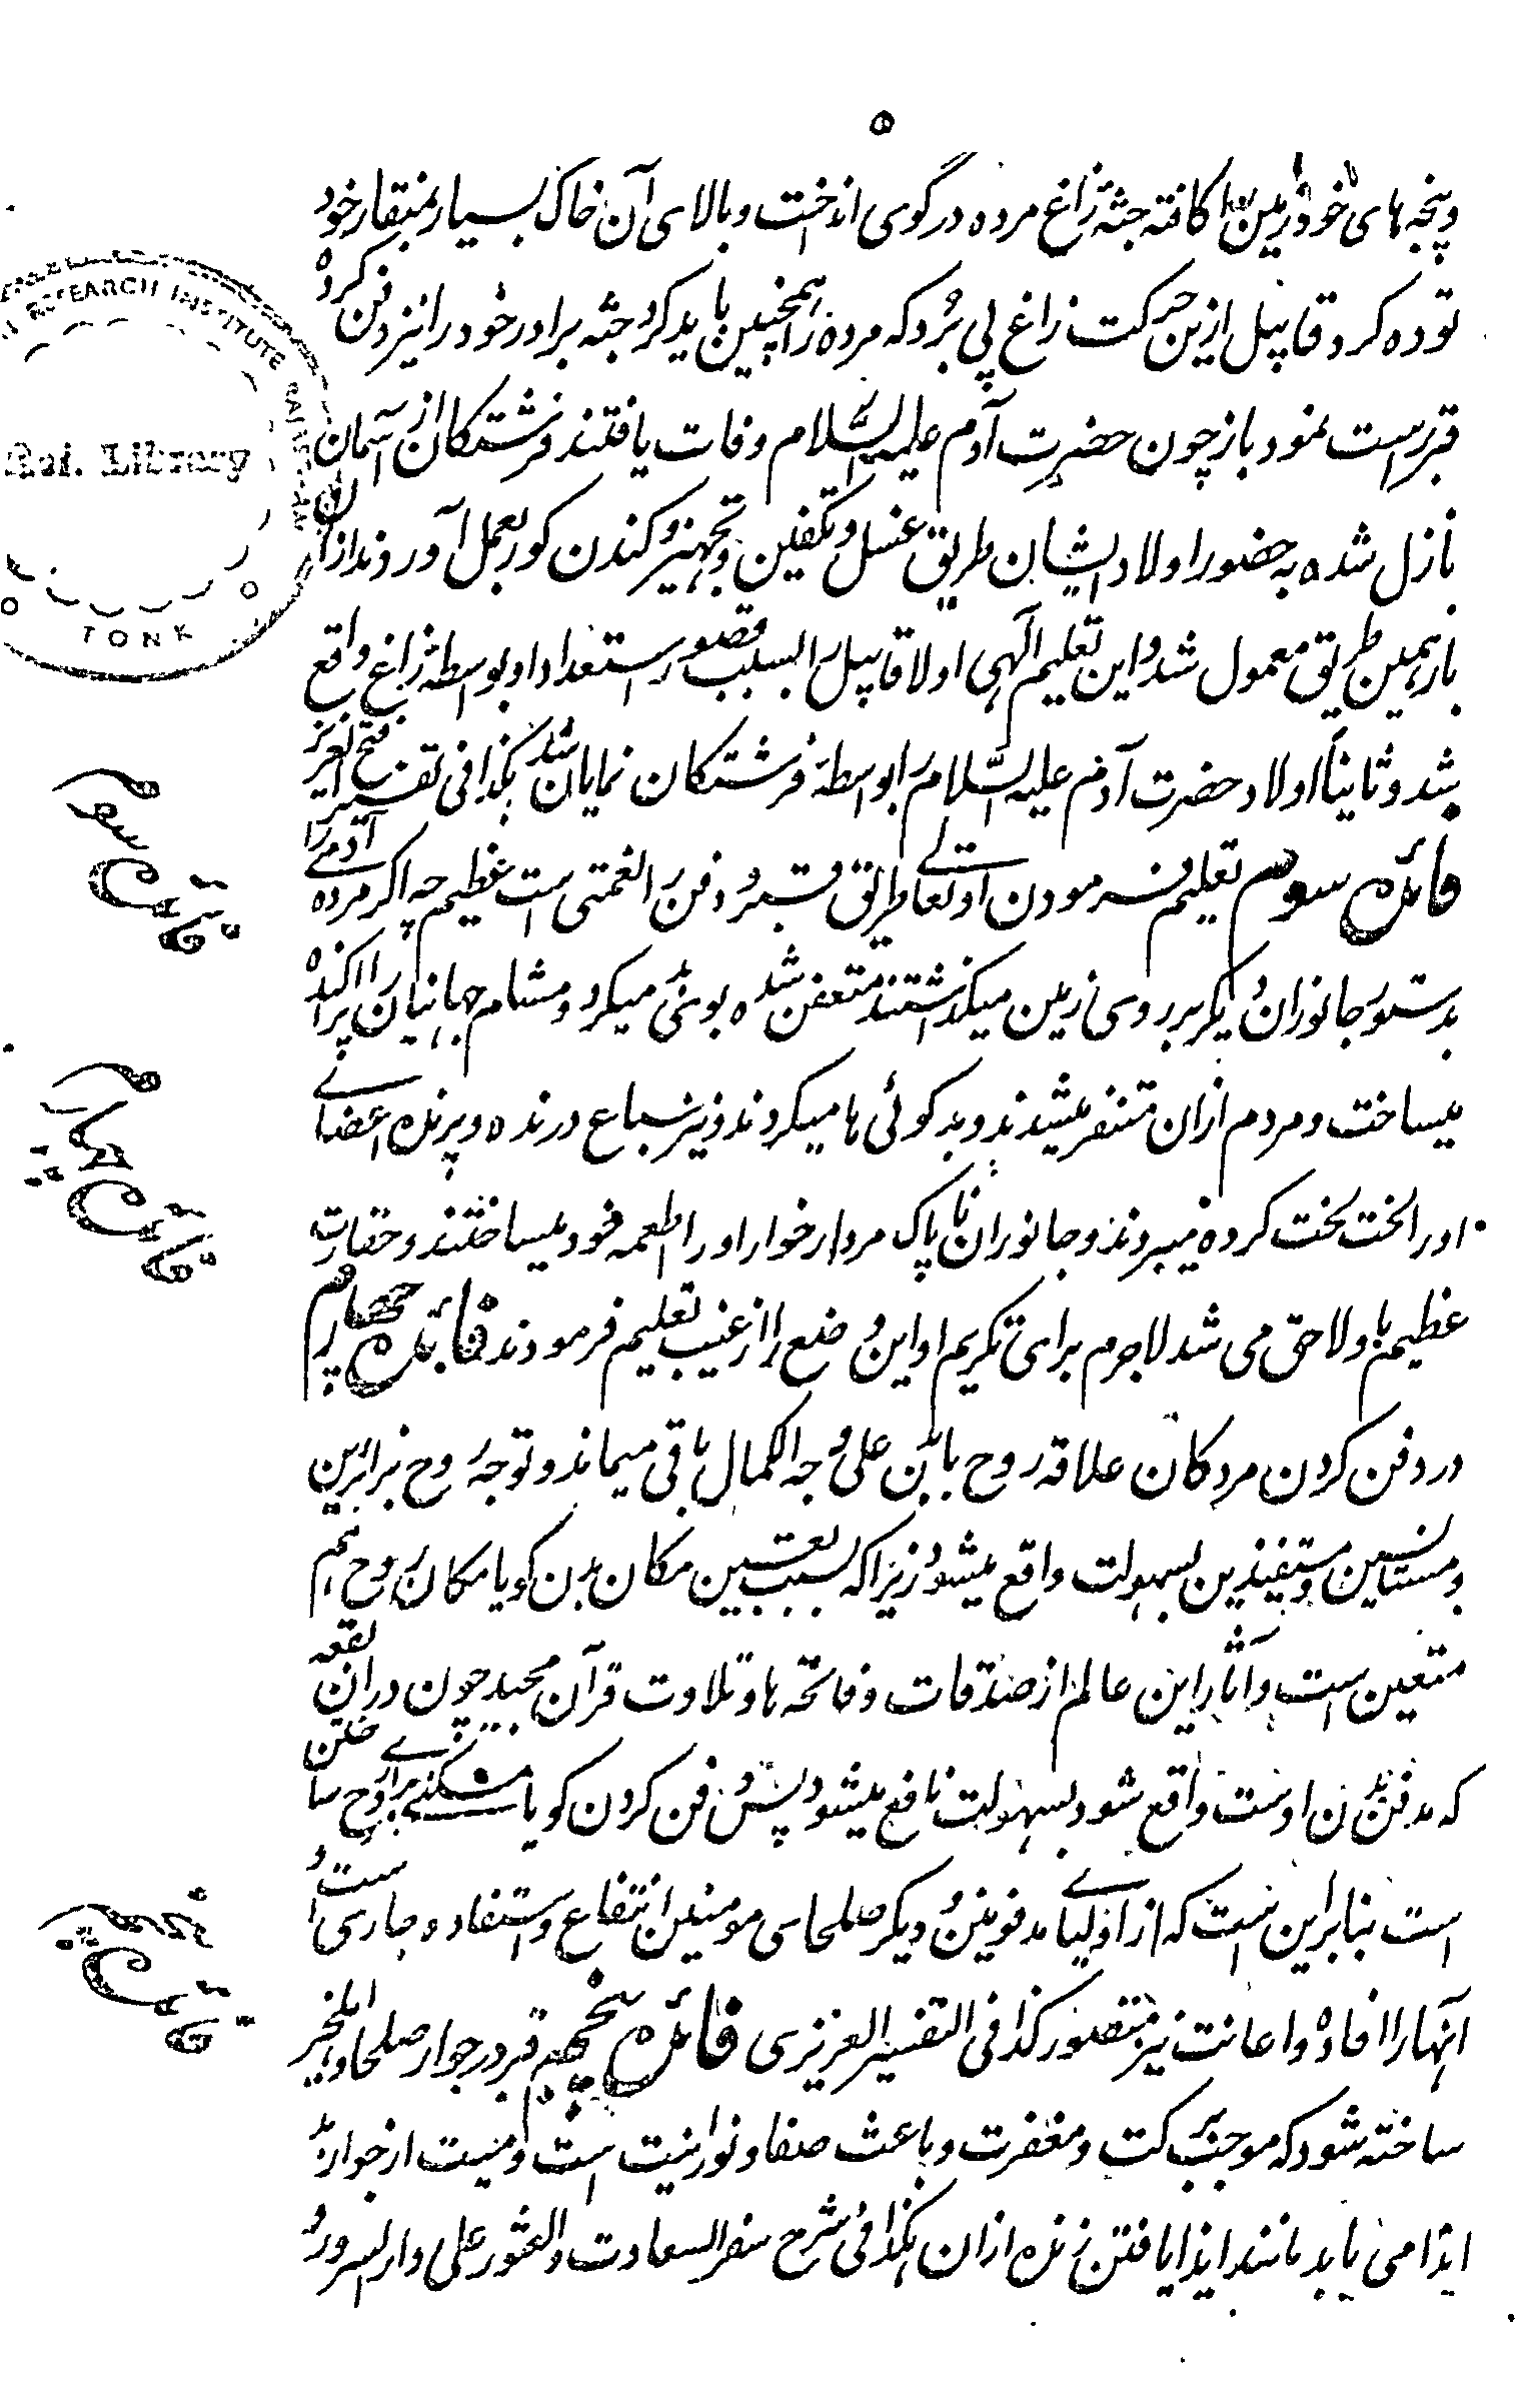 ۵
و پنجه های خود زمین را کافته جثۀ زاغ مرده در گوی انداخت و بالای آن خاک بسیار بمنقار خود
توده کرد قابیل ازین حرکت زاغ پی برد که مرده را همچنین باید کرد جثه برادر خود را نیز دفن کرده
قبر راست نمود باز چون حضرت آدم علیه السلام وفات یافتند فرشتکان از آسمان
نازل شده به حضور اولاد ایشان طریق غسل و تکفین و تجهیز و کندن کور بعمل آوردند از ان
باز همین طریق معمول شد و این تعلیم الهی اولا قابیل را بسبب قصور استعداد او بواسطۀ زاغ واقع
شد و ثانیاً اولاد حضرت آدم علیه السلام را بواسطۀ فرشتکان نمایان شد هکذا فی تفسیر فتح العزیز
فائده سوم تعلیم فرمودن او تعالے طریق قبر و دفن را نعمتی است عظیم چه اکر مرده آدمے را
بدستور جانوران دیکر بر روی زمین میکذاشتند متعفن شده بوئی بد میکرد و مشام جهانیان را پراکنده
میساخت و مردم ازان متنفر میشدند و بد کوئی ها میکردند و نیز سباع درنده و پرنده اعضاے
او را لخت لخت کرده میبردند و جانوران ناپاک مردار خوار او را طعمه خود میساختند و حقارت
عظیم باو لاحق می شد لاجرم برای تکریم او این وضع را از غیب تعلیم فرمودند فائده چهارم
در دفن کردن مردکان علاقه روح با بدن علی وجه الکمال باقی میماند و توجه روح بزائرین
و مستانسین و مستفیذین بسهولت واقع میشود زیرا که بسبب تعیین مکان بدن کویا مکان روح هم
متعین است و آثار این عالم از صدقات و فاتحه ها و تلاوت قرآن مجید چون دران بقعه
که مدفن بدن اوست واقع شود بسهولت نافع میشود پس دفن کردن کویا مسکنے براے روح ساختن
است بنابراین است که از اولیاے مدفونین و دیکر صلحای مومنین انتفاع و استفاده جاری است و
آنها را افاده و اعانت نیز متصور کذا فی التفسیر العزیزی فائده پنجم قبر در جوار صلحا و اهل خیر
ساخته شود که موجب برکت و مغفرت و باعث صفا و نورانیت است و میت از جوار بد
ایذا می یابد مانند ایذا یافتن زنده ازان هکذا فی شرح سفر السعادت و العثور علی دار السرور
فائده سوم
فائده چهارم
فائده پنجم
RESEARCH INSTITUTE RAJASTHAN
Raj. Library
TONK